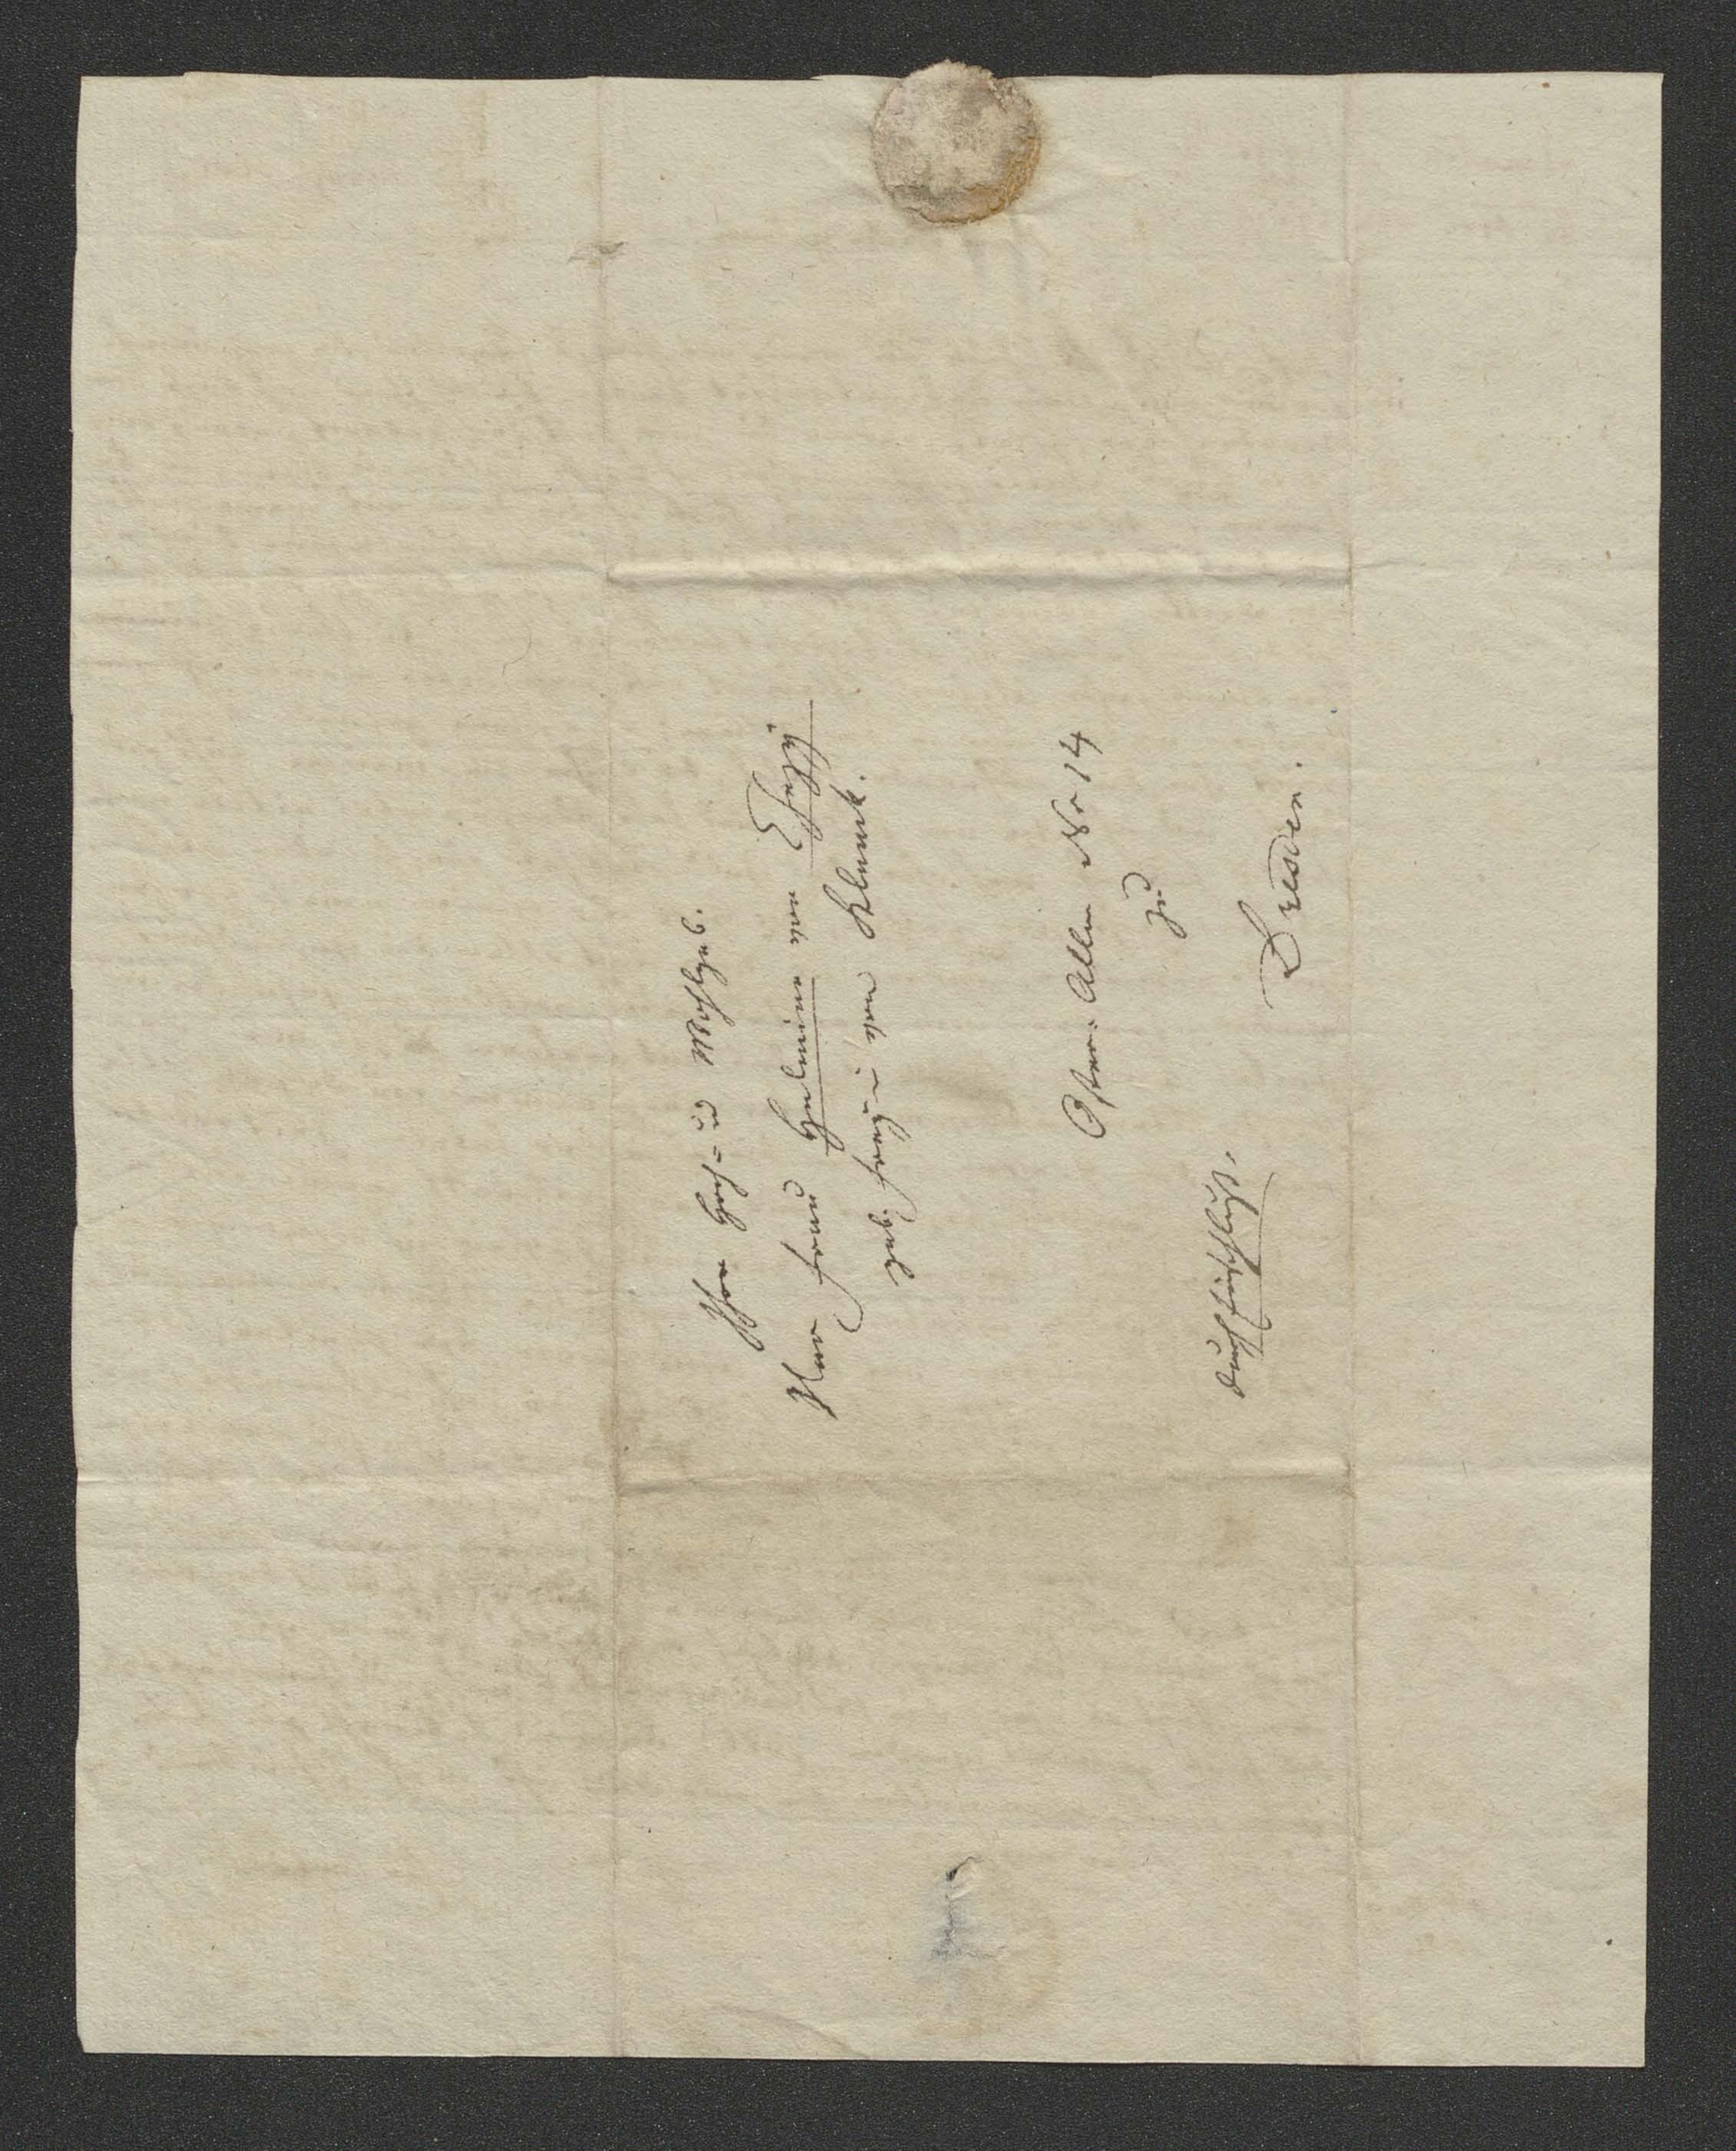 Ihro Hoch- u Wohlgeb.
Der Frau Helmine von Chezÿ
geb. Freyin von Klenck.
Oster-Allee No 14
zu
Dresden.
durch Einschluß.